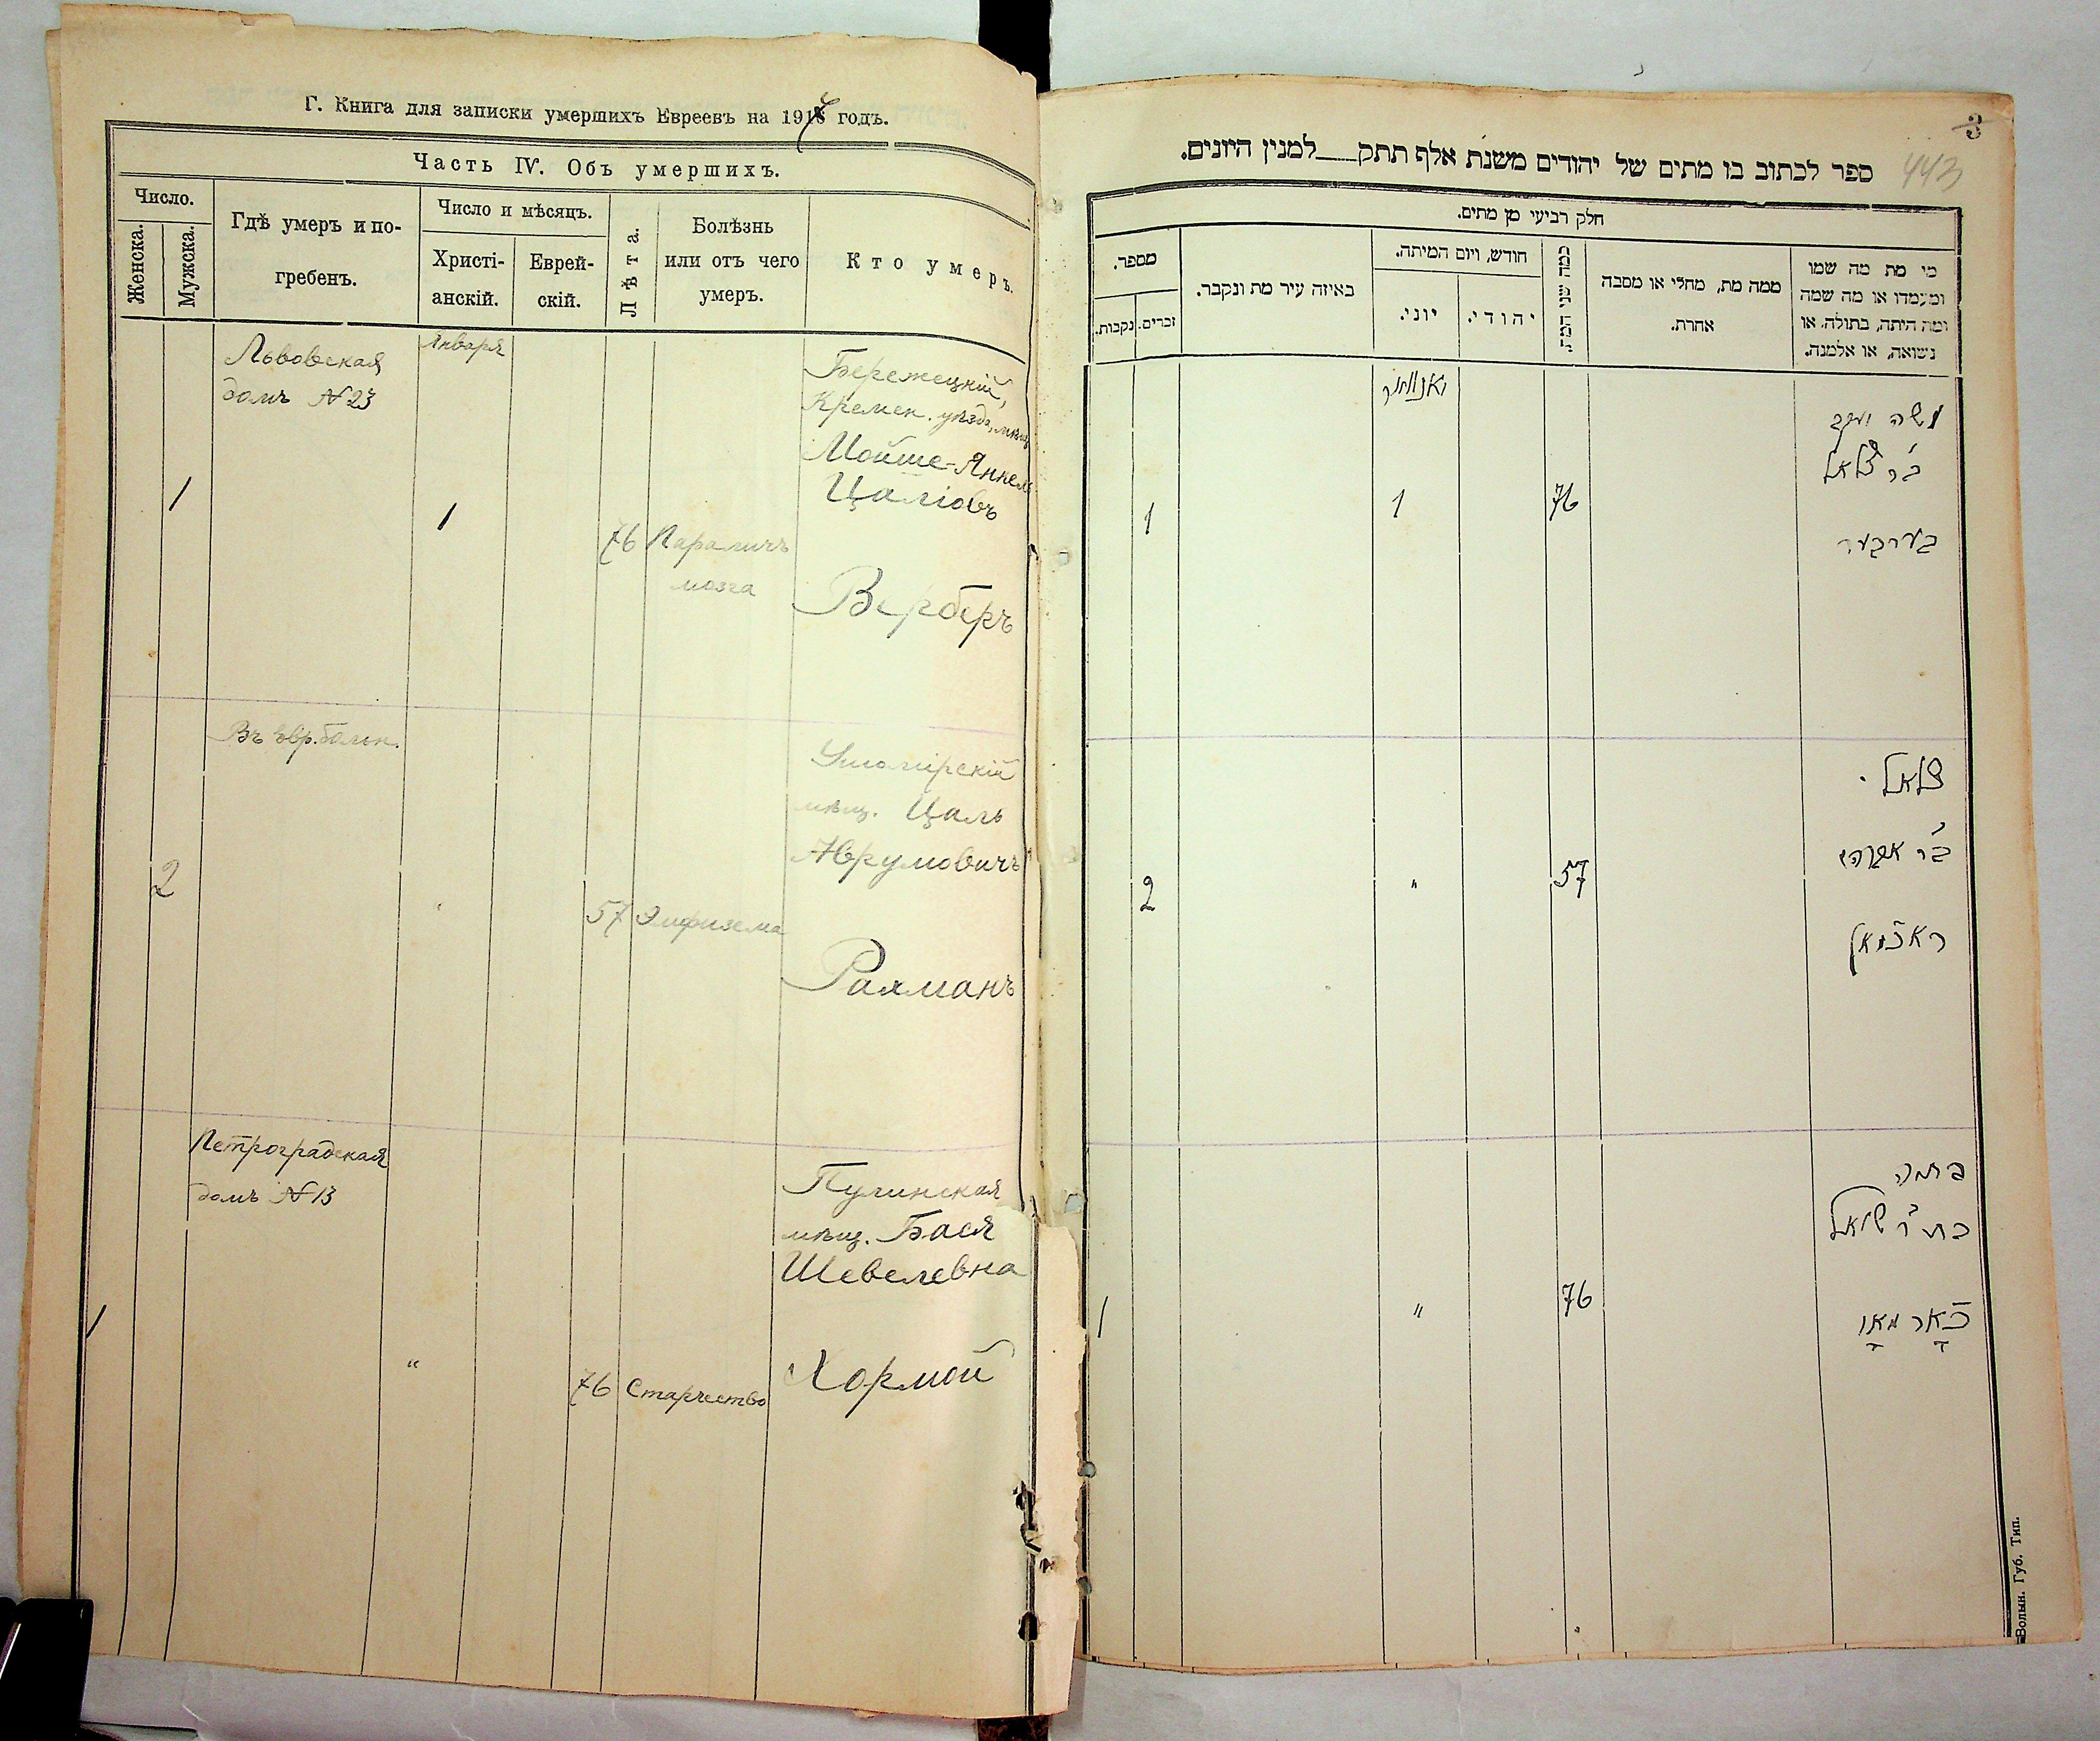 Г. Книга для записки умершихъ Евреевъ на 191 годъ.
Часть IV. Объ умершихъ.
Число.
Женска.
Мужска.
Гдѣ умеръ и по-
гребенъ.
Число и мѣсяцъ.
Христі-
анскій.
Еврей-
скій.
Лѣта.
Болѣзнь
или отъ чего
умеръ.
Кто умеръ.
Львовская
домъ № 23
Января
1
1
76
Параличъ
мозга
Бережецкій,
Кремен. уѣзда, мѣщ
Мойше-Янкель
Цаліовъ
Верберъ
Въ евр. больн.
2
"
57
Эмфизема
мѣщ. Цаль
Аврумовичъ
Рахманъ
Петроградская
домъ № 13
1
"
76
Старчество
Пулинская
мѣщ. Бася
Шевелевна
Хормой
3
443
ספר לכתוב בו מתים של יהודים משנת אלף תתק__למנין היונים.
חלק רביעי מן מתים.
מספר.
נקבות.
זכרים.
באיזה עיר מת ונקבר.
חודש, ויום המיתה.
יוני.
יהודי.
כמה שני המת.
ממה מת, מחלי או מסבה
אחרת.
מי מת מה שמו
ומעמדו או מה שמה
ומה היתה, בתולה, או
נשואה, או אלמנה.
יאנואר
משה יעקב
ב"ר צלאל
76
1
1
בערבער
צלאל
ב"ר אברהם
57
"
2
ראכמאן
בתיה
76
"
1
Волын. Губ. Тип.